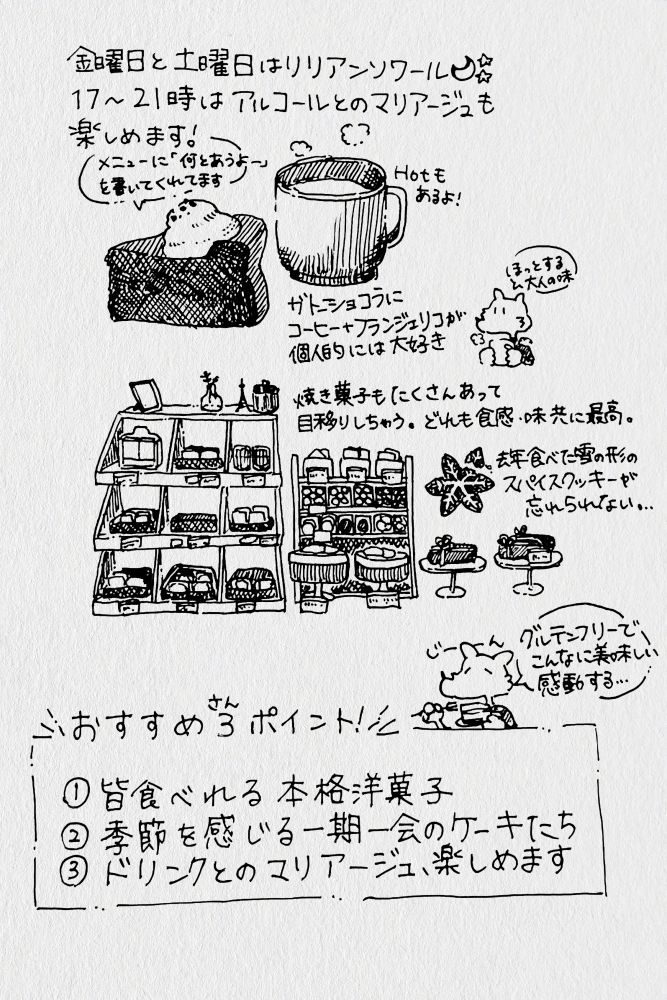 金曜日と土曜日はリリアンソワール
17～21時はアルコールとのマリアージュも
楽しめます!
メニューに「何とあうよ〜」
を書いてくれてます
Hotも
あるよ!
ほっとする
大人の味
ガトーショコラに
コーヒー+フランジェリコが
個人的には大好き
焼き菓子もたくさんあって
目移りしちゃう。どれも食感・味共に最高。
去年食べた雪の形の
スパイスクッキーが
忘れられない…
じーーん
グルテンフリーで
こんなに美味しい
感動する…
おすすめ3ポイント!
さん
①皆食べれる本格洋菓子
②季節を感じる一期一会のケーキたち
③ドリンクとのマリアージュ、楽しめます